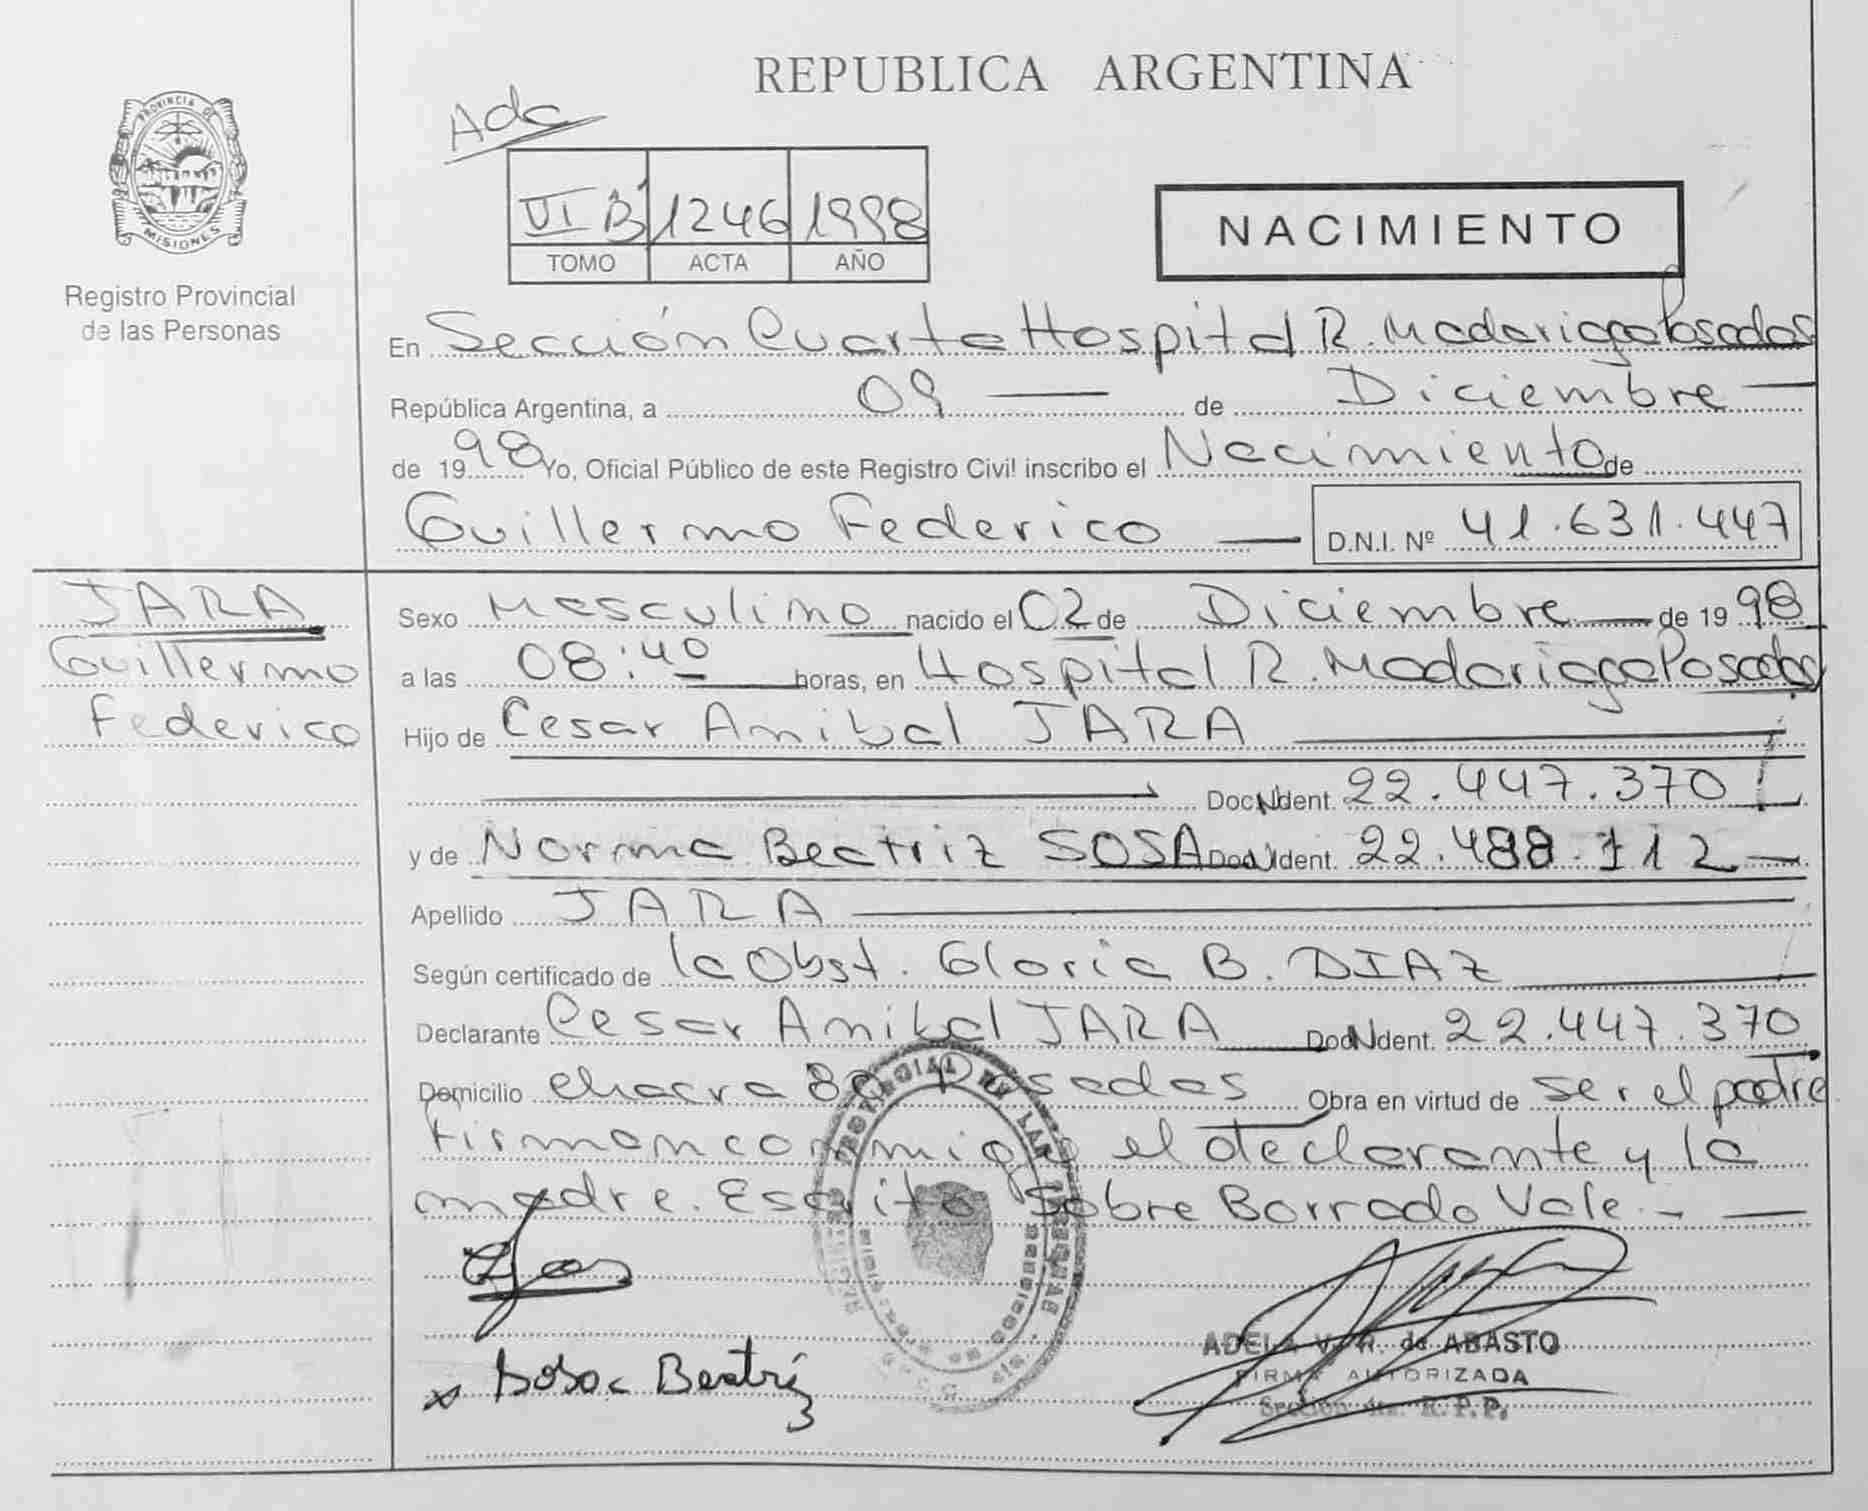 REPUBLICA ARGENTINA
PROVINCIA DE
MISIONES
Registro Provincial
de las Personas
VI B 1246 1998
TOMO ACTA AÑO
NACIMIENTO
En Sección Cuarta Hospital R. Madariaga Posadas
República Argentina, a 09 — de Diciembre —
de 1998 Yo, Oficial Público de este Registro Civil inscribo el Nacimiento de
Guillermo Federico — D.N.I. Nº 41.631.447
JARA
Guillermo
Federico
Sexo Masculino nacido el 02 de Diciembre — de 1998
a las 08:40 horas, en Hospital R. Madariaga Posadas
Hijo de Cesar Anibal JARA
Doc. Ident. 22.447.370
y de Norma Beatriz SOSA Doc. Ident. 22.488.112 —
Apellido JARA
Según certificado de la Obst. Gloria B. DIAZ
Declarante Cesar Anibal JARA Doc. Ident. 22.447.370
Domicilio chacra Posadas Obra en virtud de ser el padre
firman conmigo el declarante y la
madre. Escrito Sobre Borrado Vale. —
Sosa Beatriz
ADELA V. R. de ABASTO
FIRMA AUTORIZADA
Sección 4ta. R.P.P.